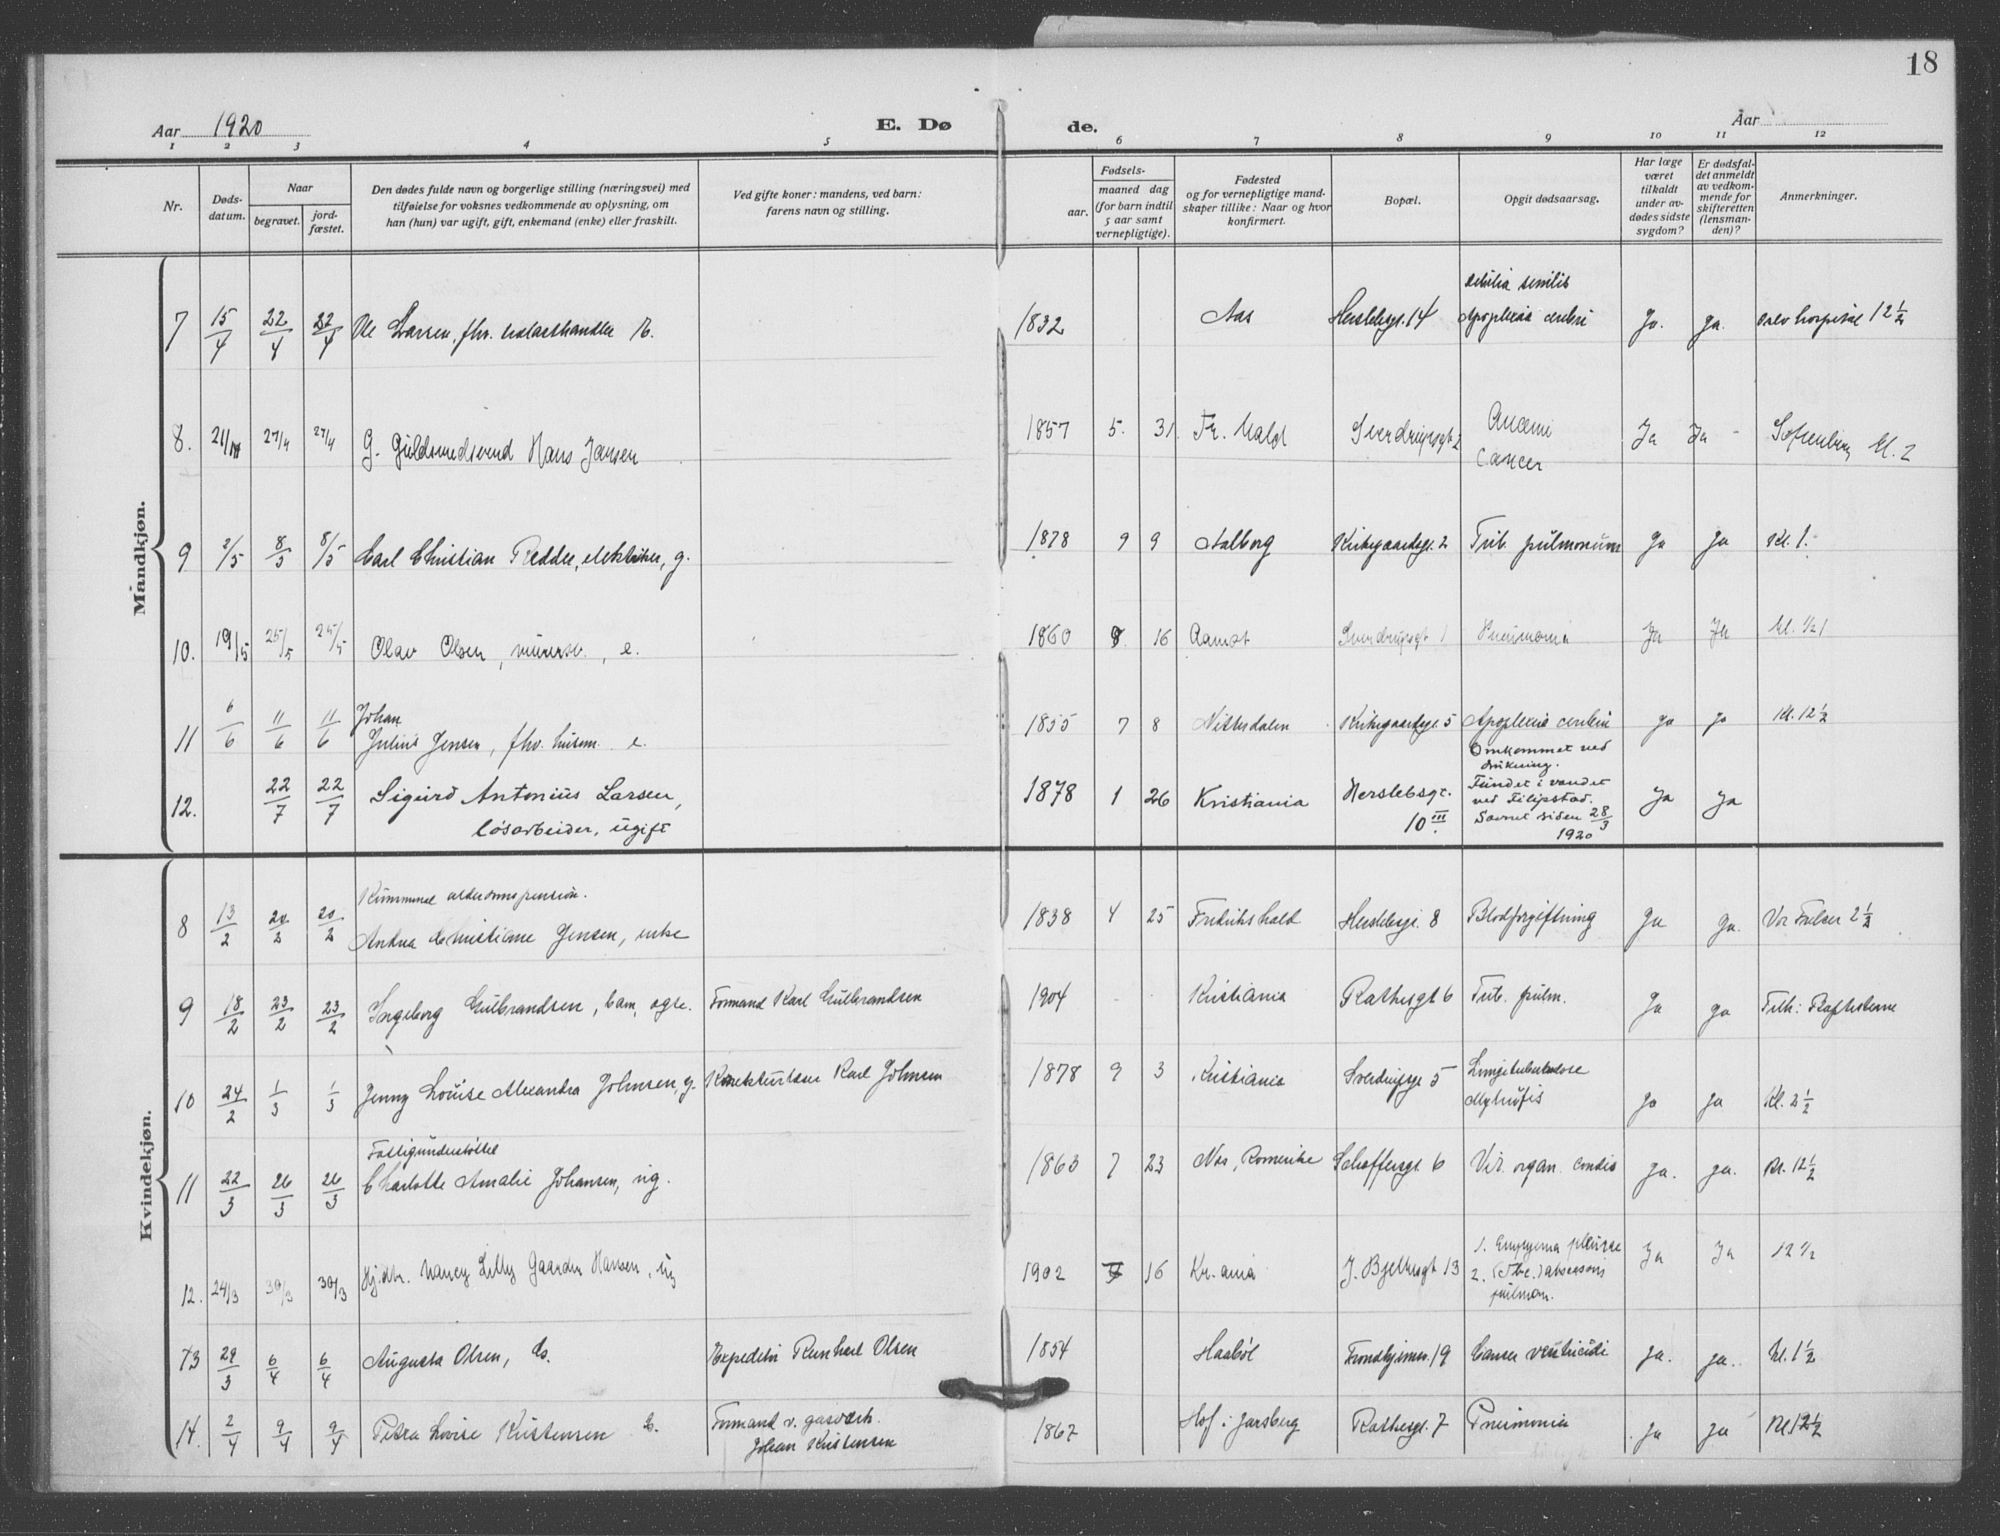 18
Aar 1920
E. Døde.
Aar
1 2 3 4 5 6 7 8 9 10 11 12
Nr.
Døds-
datum.
Naar
begravet.
jord-
fæstet.
Den dødes fulde navn og borgerlige stilling (næringsvei) med
tilføielse for voksnes vedkommende av oplysning, om
han (hun) var ugift, gift, enkemand (enke) eller fraskilt.
Ved gifte koner: mandens, ved barn:
farens navn og stilling.
Fødsels-
aar.
maaned dag
(for barn indtil
5 aar samt
vernepligtige).
Fødested
og for vernepligtige mand-
skaper tillike: Naar og hvor
konfirmert.
Bopæl.
Opgit dødsaarsag.
Har læge
været
tilkaldt
under av-
dødes sidste
sygdom?
Er dødsfal-
det anmeldt
av vedkom-
mende for
skifteretten
(lensman-
den)?
Anmerkninger.
Mandkjøn.
7 15/4 22/4 22/4 Ole Larsen, fhv. 1832 Aas Herslebsgt. 14 senilis
Apoplexia cerebri Ja. Ja. Oslo hospital 12 1/2
8. 21/4 27/4 27/4 G. Guldsmedsvend Hans Jansen 1857 5. 31. Fr. hald Sverdrupsgt 2 Anæmi
Cancer Ja Ja - Sofienberg kl. 2
9 2/5 8/5 8/5 Carl Christian Fredder, elektriker, g. 1878 9 9 Aalborg Kirkegaardsgt. 2 Tub. pulmonum Ja Ja Kl. 1.
10. 19/5 25/5 25/5 Olav Olsen, murersv., e. 1860 8 16 Aamot Sverdrupsgt 1 Pneumonia Ja Ja kl. 1/21
11 6/6 11/6 11/6 Johan
Julius Jensen, fhv. husm. e. 1855 7 8 Nittedalen Kirkegaardsgt. 5 Apoplexia cerebri Ja Ja Kl. 12 1/2
12. 22/7 22/7 Sigurd Antonius Larsen,
løsarbeider, ugift 1878 1 26 Kristiania Herslebsgt.
10 III Omkommet ved
drukning.
Fundet i vandet
ved Filipstad.
Savnet siden 28/3
1920 Ja Ja
Kvindekjøn.
8 13/2 20/2 20/2 Kommunal alderdomspension.
Andrea Christiane Jensen, enke 1838 4 25 Fredrikshald Herslebsgt. 8 Blodforgiftning Ja Ja. Vor Frelser 2 1/2
9 18/2 23/2 23/2 Ingeborg Gulbrandsen, barn, egte. Formand Karl Gulbrandsen 1904 Kristiania Rathkesgt 6 Tub. pulm. Ja Ja Tilh: Baptisterne
10 24/2 1/3 1/3 Jenny Louise Alexandra Johnsen, g. Korrekturlæser Karl Johnsen 1878 9 3 Kristiania Sverdrupsgt 5 Lungetuberkulose
Ja Ja Kl. 2 1/2
11 22/3 26/3 26/3 Fattigunderstøttet
Charlotte Amalie Johansen, ug. 1863 7 23 Nes, Romerike Schøffersgt. 6 Vit. organ. cordis Ja. Ja. Kl. 12 1/2
12. 24/3 30/3 30/3 Hj.dtr. Nancy Lilly Gaarder Hansen, ug 1902 16 Kr.ania J. Bjelkesgt 13 1. Empyema pleuræ
2. (Tbc.) abscessus
pulmon. Ja Ja 12 1/2
13 29/3 6/4 6/4 Augusta Olsen, G. Expeditør Reinhart Olsen 1854 Haabøl Trondhjemsv. 19 Cancer ventriculi Ja. Ja. Kl. 1 1/2
14. 2/4 9/4 9/4 Petra Lovise Kristensen G. Formand v. gasværk.
Johan Kristensen 1867 Hof i Jarlsberg Rathkesgt. 7 Pneumonia Ja Ja Kl. 12 1/2